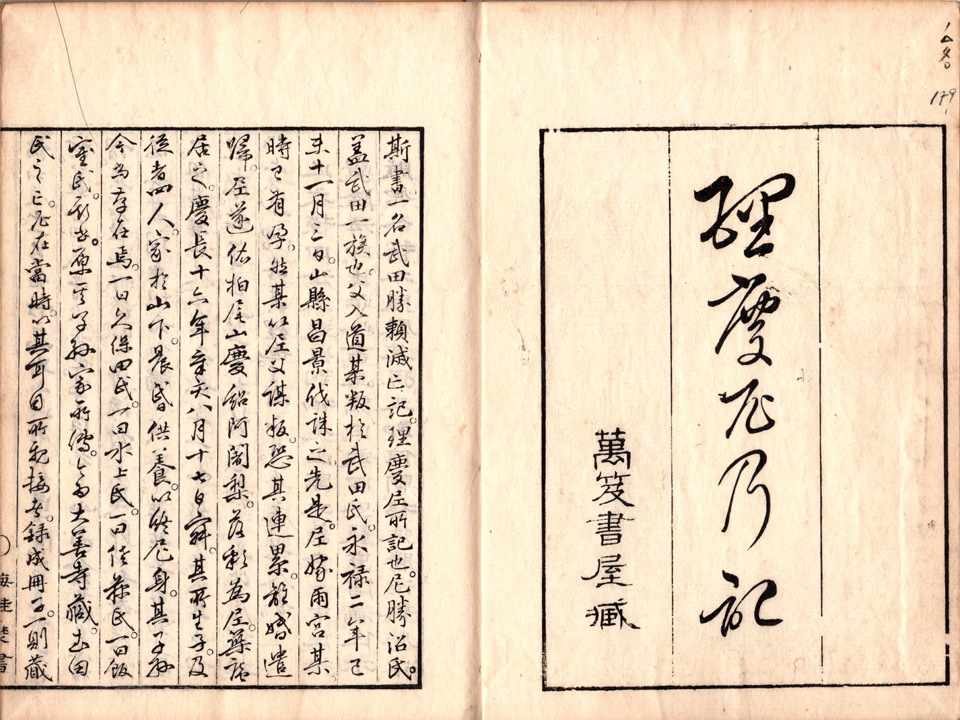 理慶尼乃記
萬笈書屋藏
179
斯書一名武田勝頼滅亡記。理慶尼所記也。尼勝沼氏。
蓋武田一族也。父入道某叛於武田氏。永禄二年己
未十一月三日。山縣昌景伐誅之。先是。尼嫁雨宮某
時已有孕。然某以尼父謀叛。恐其連累。離婚遣
帰。尼遂依柏尾山慶紹阿闍梨。落彩為尼。築菴
居之。慶長十六年辛亥八月十七日寂。其所生子。及
從者四人。家於山下。晨昏供養。以終尼身。其子孫
今尚存在焉。一曰久保田氏。一曰水上氏。一曰佐藤氏。一曰飯
室氏。
此書原其子孫家所傳。今為大善寺藏。
氏之亡。尼在當時。以其耳目所親接者。録成冊子。一則藏